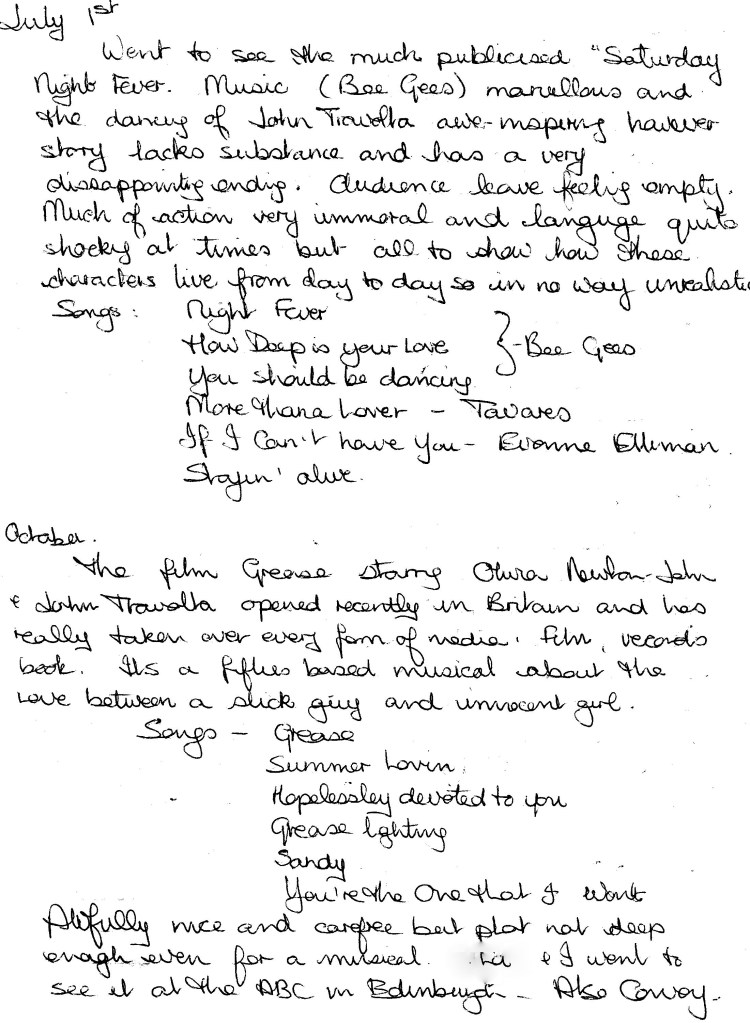 July 1st
Went to see the much publicised "Saturday
Night Fever. Music (Bee Gees) marvellous and
the dancing of John Travolta awe-inspiring however
story lacks substance and has a very
dissappointing ending. Audience leave feeling empty.
Much of action very immoral and languge quite
shocking at times but all to show how these
characters live from day to day so in no way unrealistic
Songs: Night Fever
How Deep is your Love } - Bee Gees
You should be dancing
More than a Lover - Tavares
If I Can't have You - Evonne Elliman.
Stayin' alive.
October.
The film Grease starring Olivia Newton-John
& John Travolta opened recently in Britain and has
really taken over every form of media. film, records
book. Its a fifties based musical about the
Love between a slick guy and innocent girl.
Songs - Grease
Summer Lovin
Hopelessley devoted to you
Grease lighting
Sandy
You're the One that I Want
Awfully nice and carefree but plot not deep
enough even for a musical. & I went to
see it at the ABC in Edinburgh - Also Convoy.